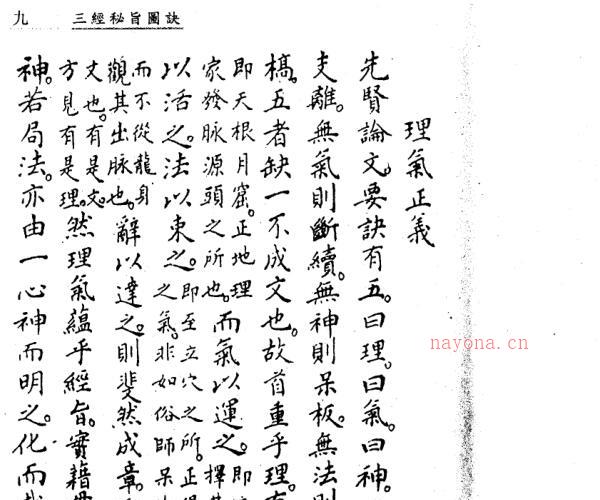 九 三經秘旨圖訣
理氣正義
先賢論文。要訣有五。曰理。曰氣。曰神。
支離。無氣則斷續。無神則呆板。無法則
槁。五者缺一不成文也。故首重乎理。
即天根月窟。正地理
家發脉源頭之所也。
而氣以運之。
即
擇其
以活之。法以束之。
即至立穴之所。正
之氣。非如俗師呆
而不從龍身
觀其出脉也。
辭以達之。則斐然成章。
文也。有是文。
方見有是理。
然理氣蘊乎經旨。實藉
神。若局法。亦由一心神而明之。化而
nayona.cn